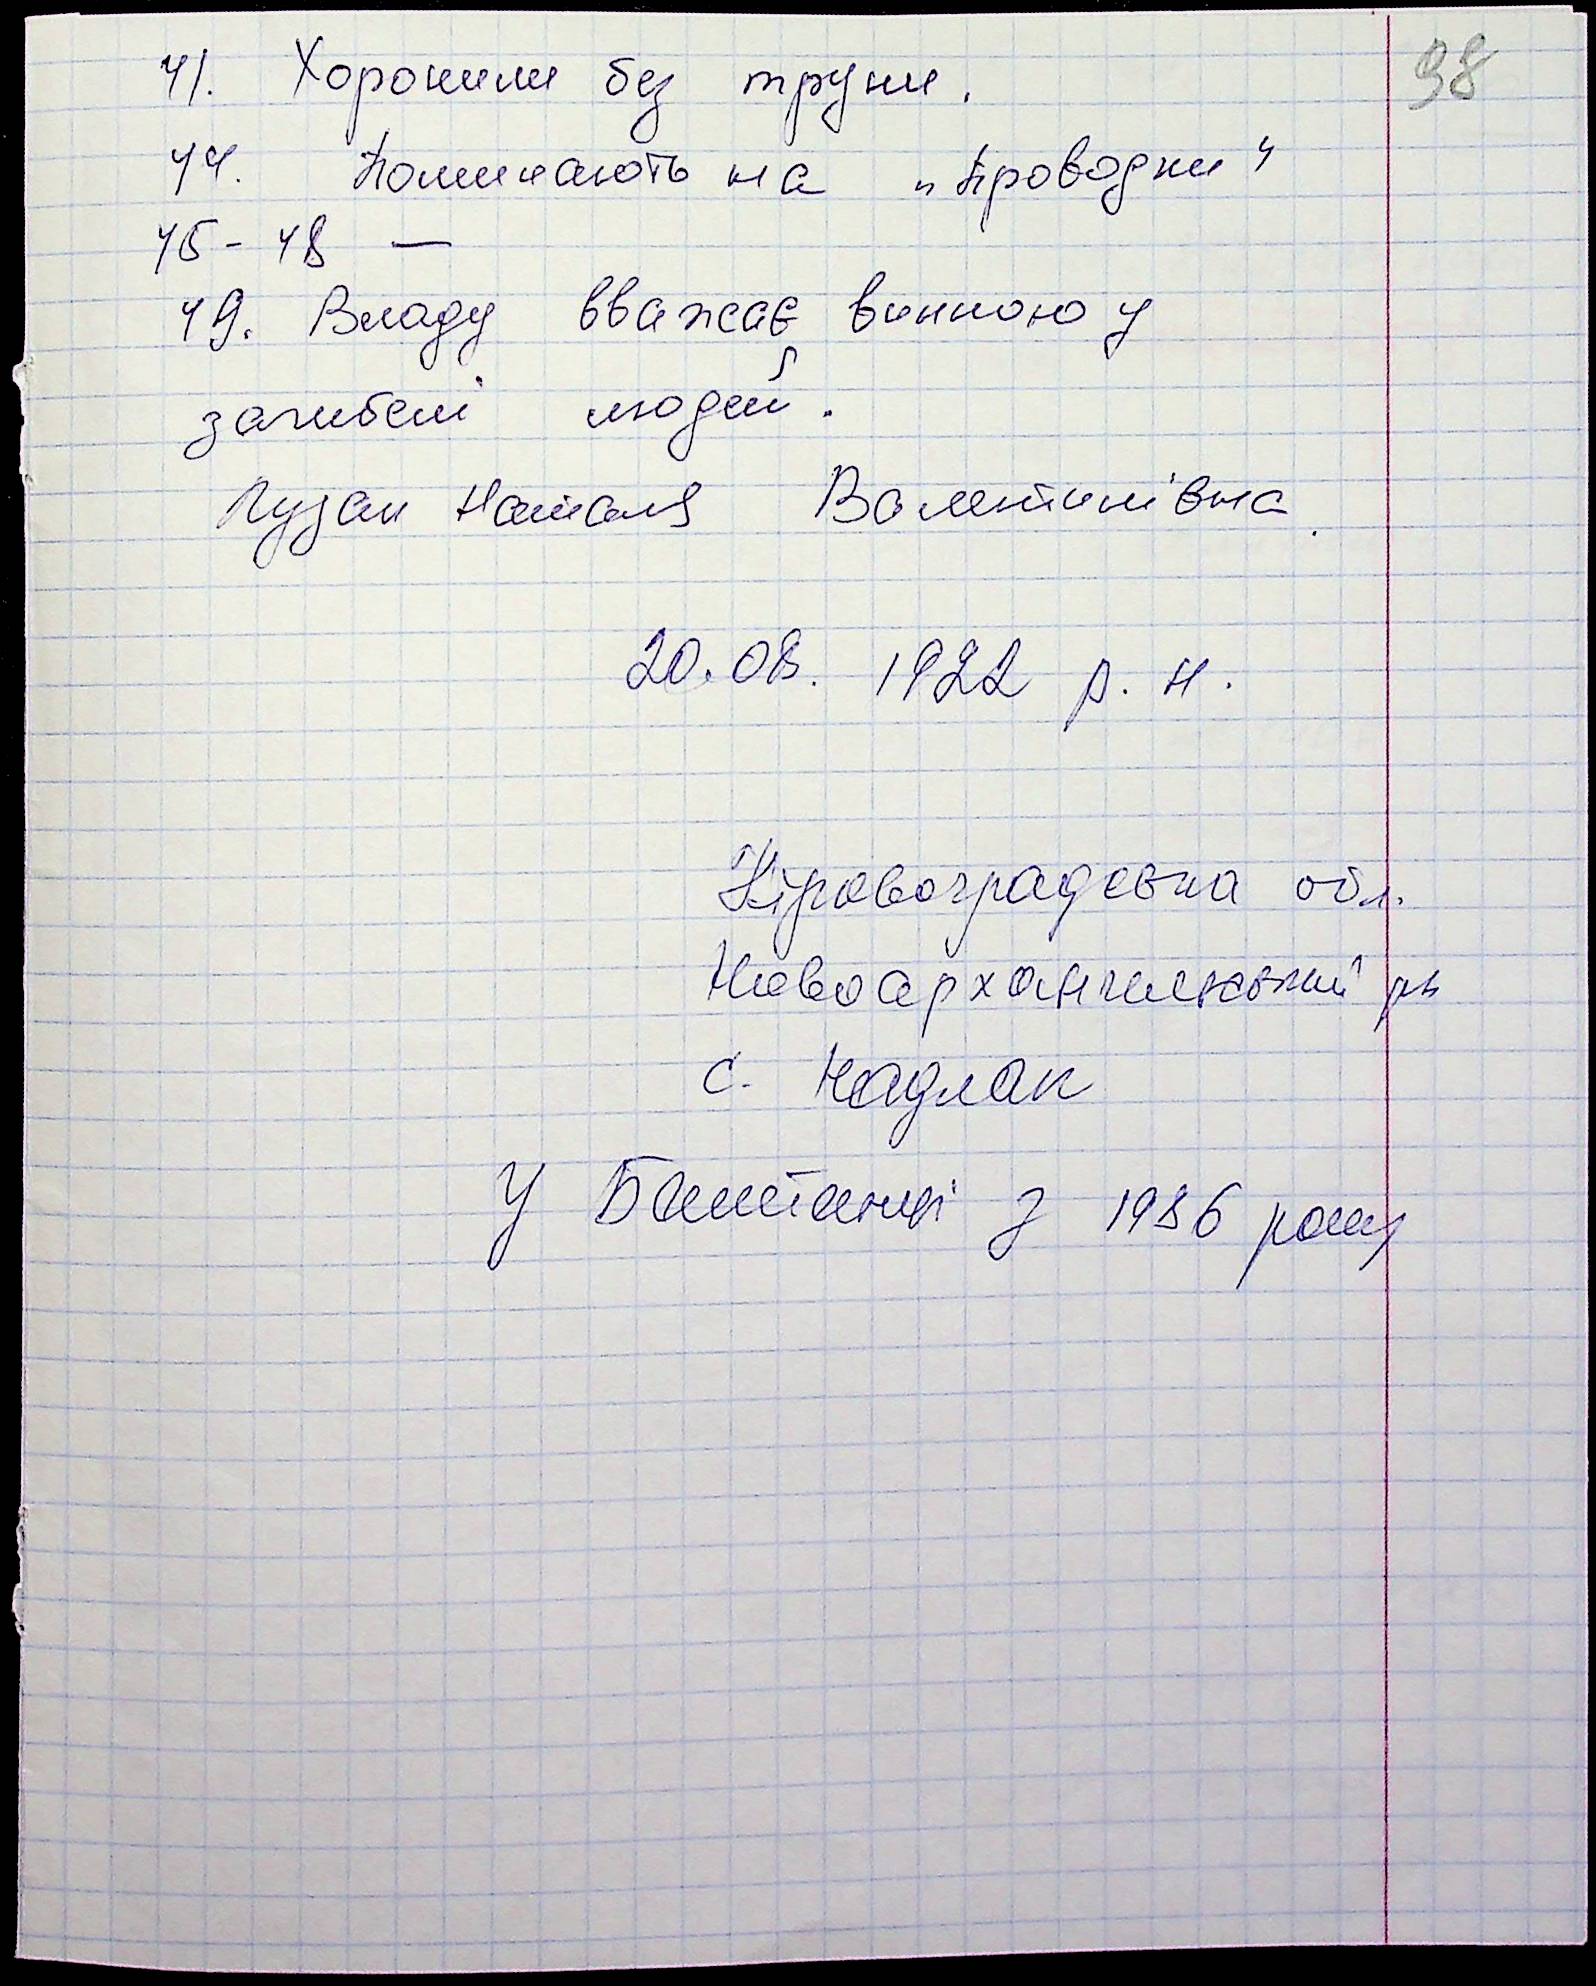 98
41. Хоронили без труни.
44. Поминають на „Проводки"
45-48 —
49. Владу вважає винною у
загибелі людей.
Пузак Наталя Валентинівна.
20.08. 1922 р. н.
Кіровоградська обл.
Новоархангельський рн
с. Надлак
У Баштанці з 1986 року